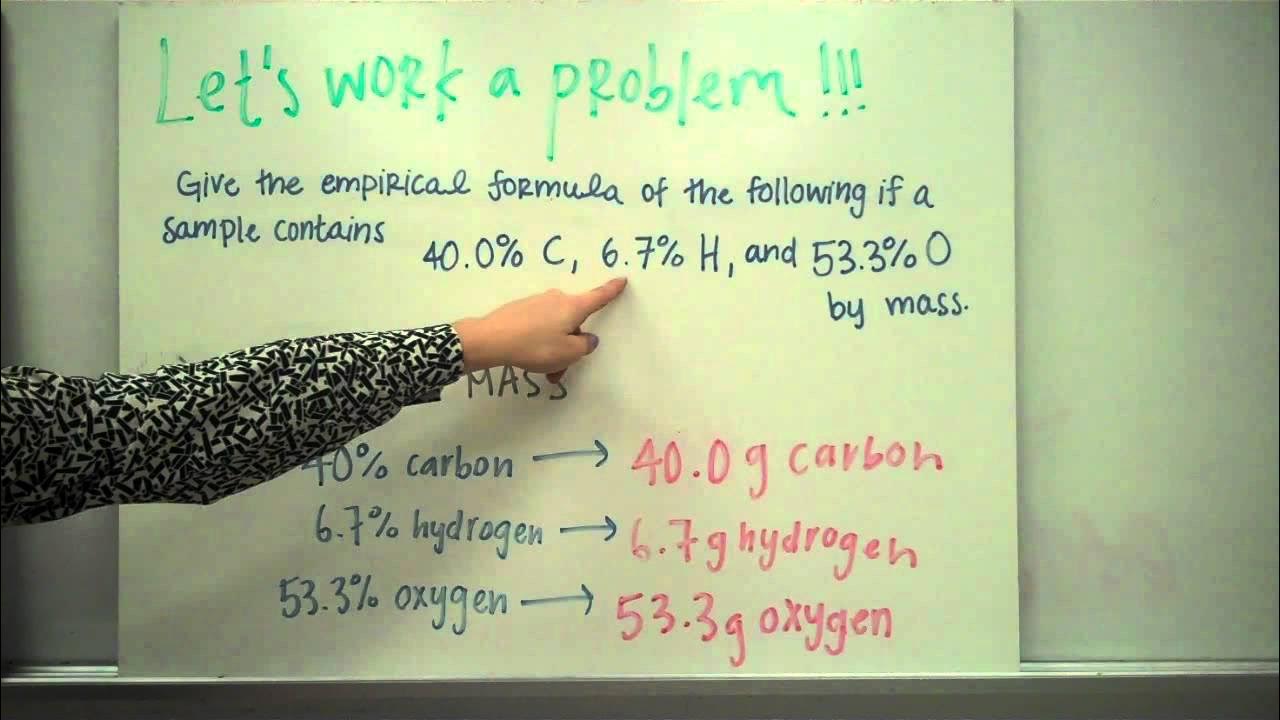 Let's work a problem!!!
Give the empirical formula of the following if a
sample contains
40.0% C, 6.7% H, and 53.3% O
by mass.
MASS
40% carbon → 40.0g carbon
6.7% hydrogen → 6.7g hydrogen
53.3% oxygen → 53.3g oxygen